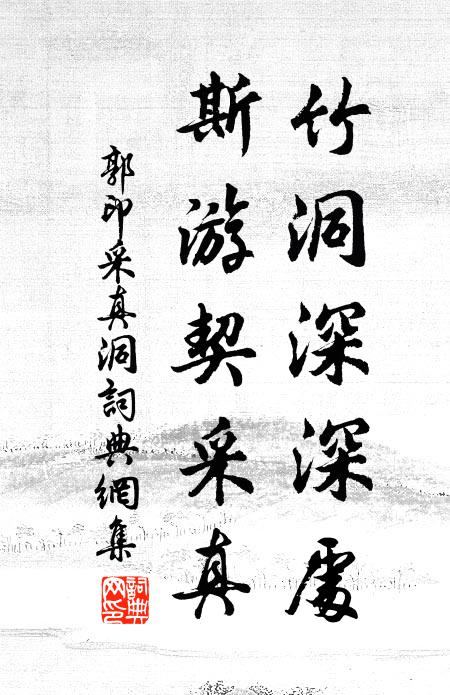 竹洞深深處
斯游契采真
郭印采真洞詞典網集
詞典网印